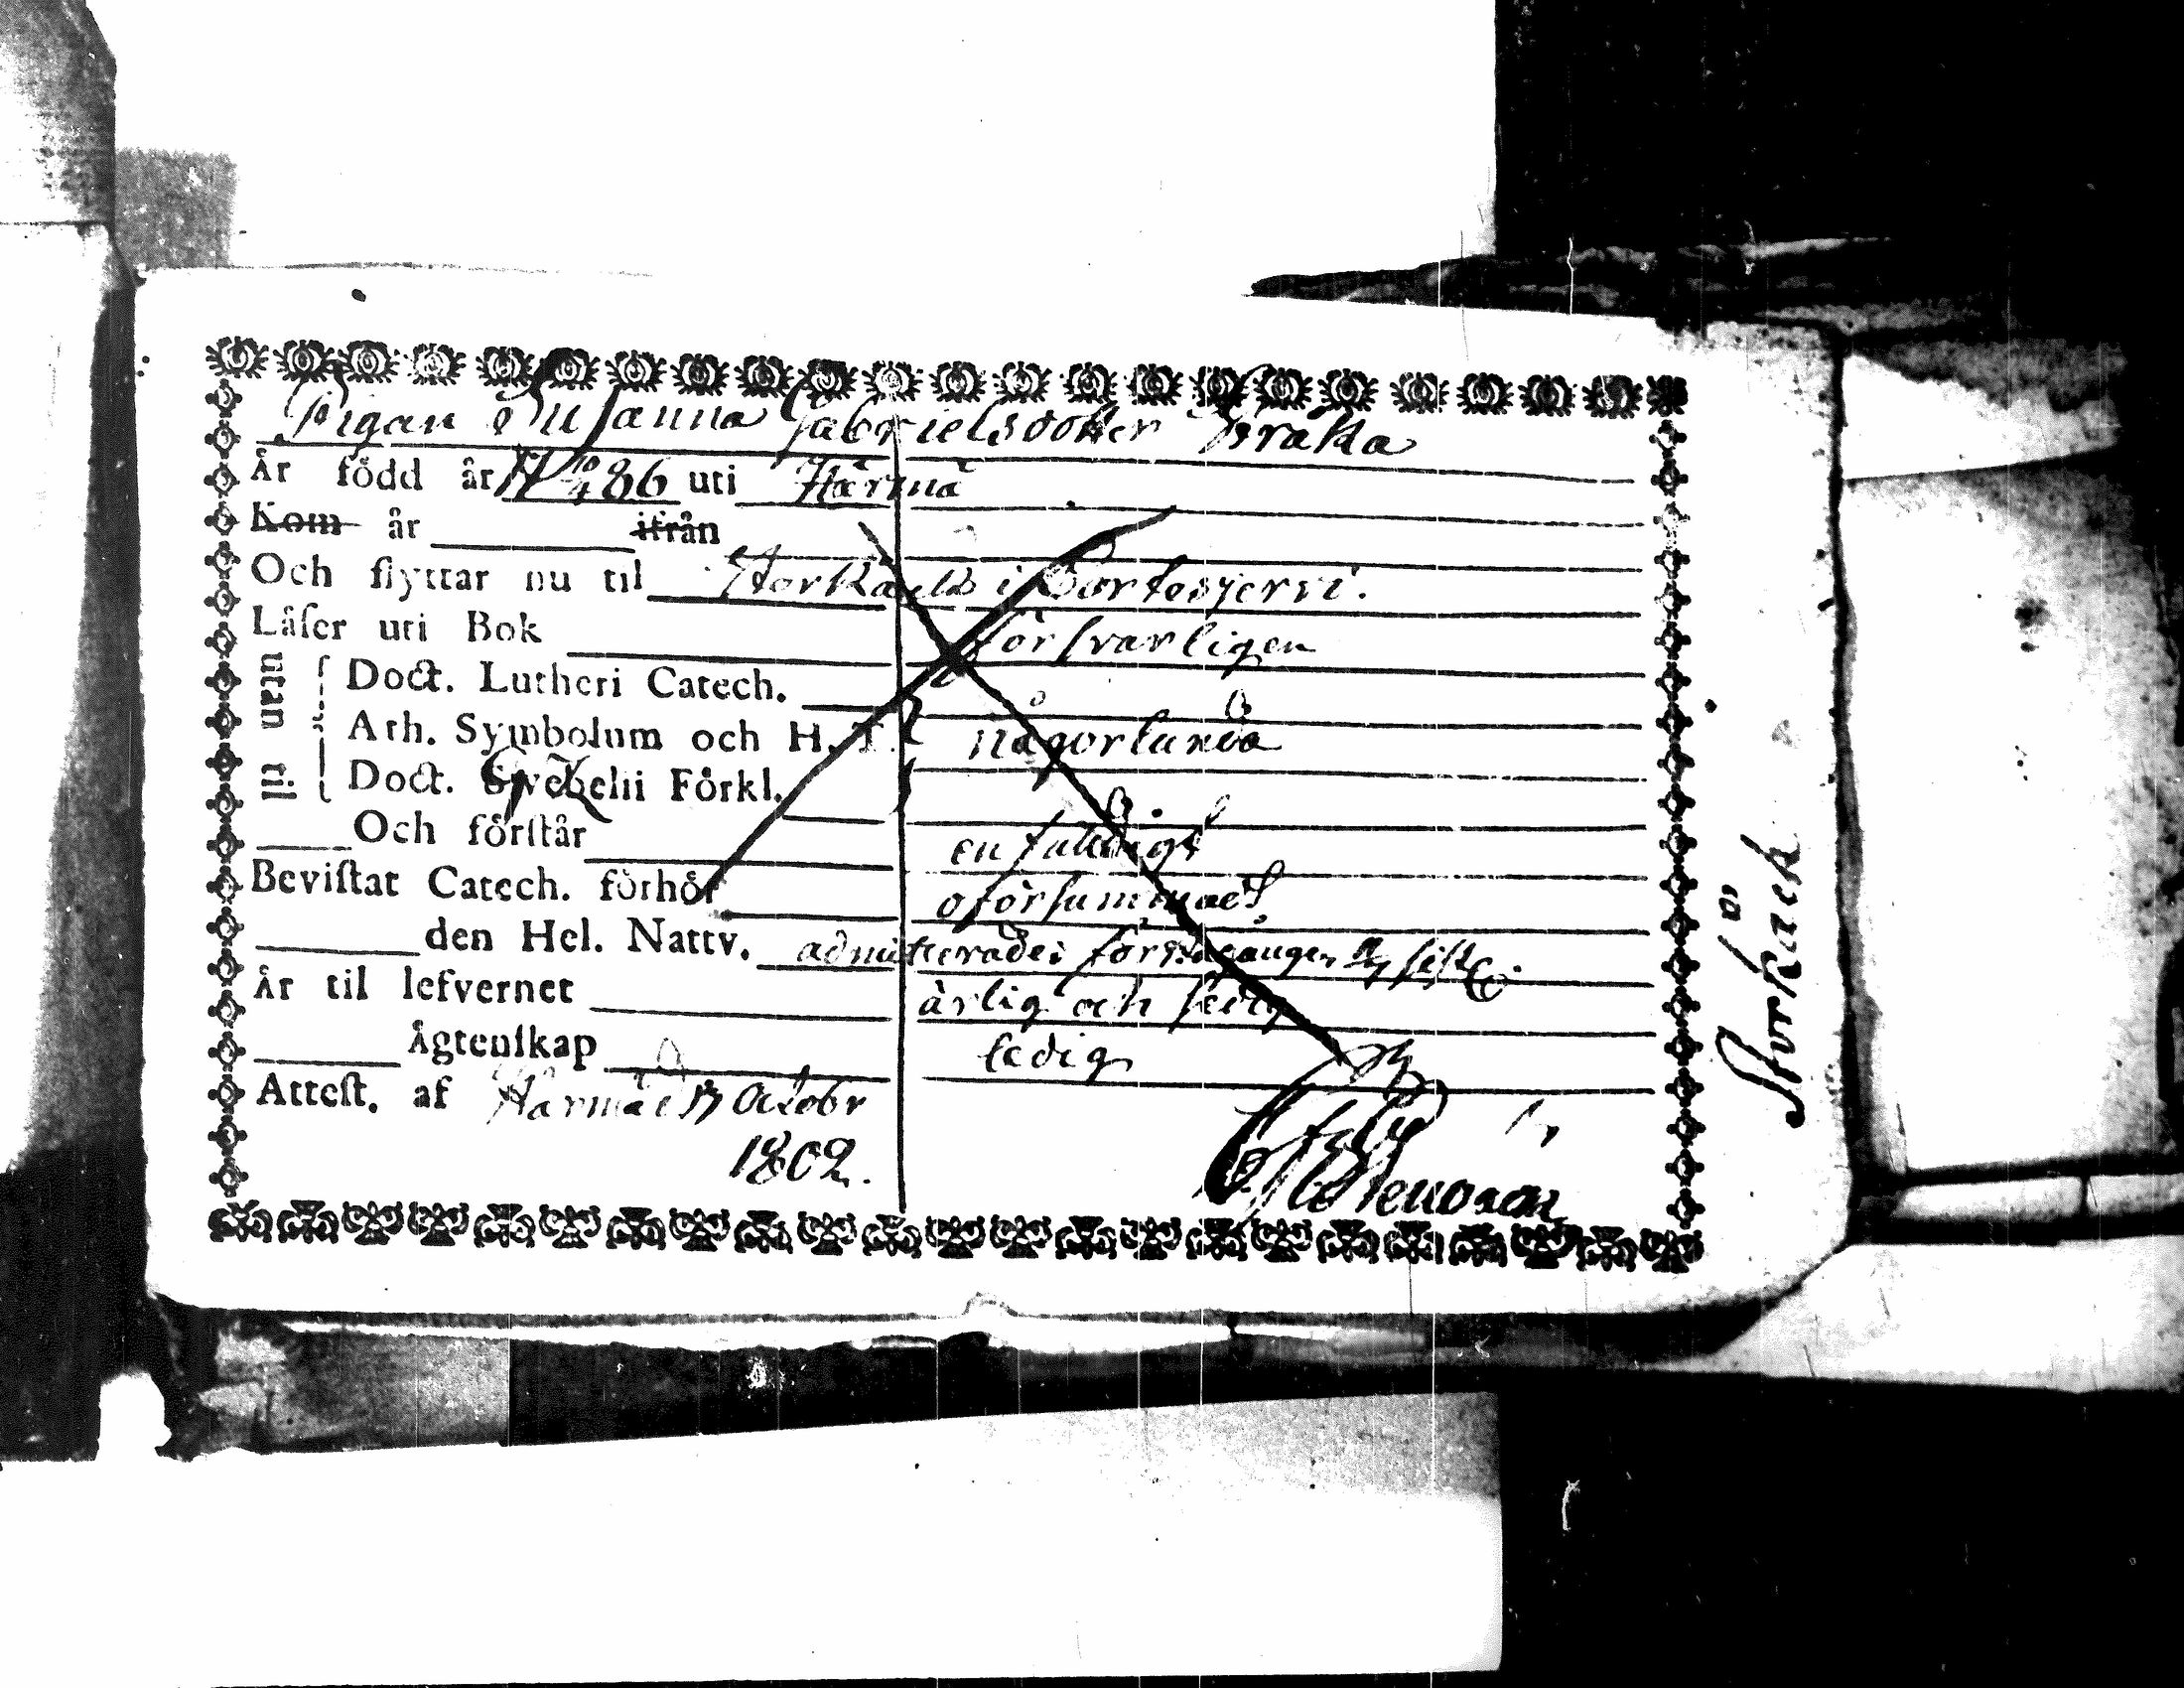 Pigan Susanna Gabrielsdotter Braka
År född år 17 10/4 86 uti Härmä
Kom år ifrån
Och flyttar nu til Storkåck i Cortesjervi.
Låser uti Bok försvarligen
utan til
Doct. Lutheri Catech.
Ath. Symbolum och H. T. någorlunda
Doct. Swebelii Förkl.
Och förstår enfaldigt
Bevistat Catech. förhör oförsummat
den Hel. Nattv. admitterades första gången sistl.
År til lefvernet ärlig och sedig
Ågtenskap ledig
Attest. af Härmä d 13 Octobr
1802.
Storkåck